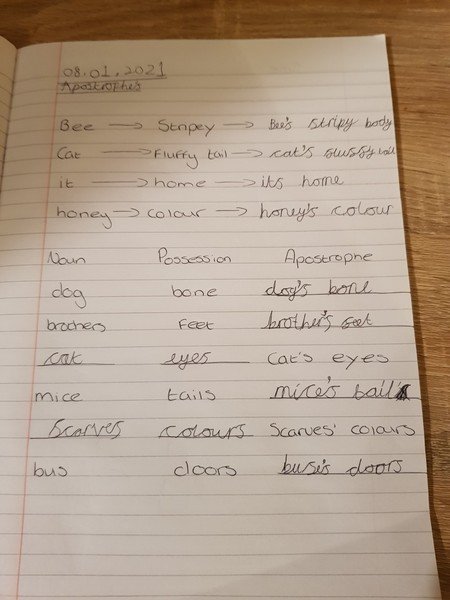 08.01.2021
Apostrophes
Bee → Stripey → Bee's stripy body
Cat → Fluffy tail → cat's fluffy tail
it → home → its home
honey → colour → honey's colour
Noun Possession Apostrophe
dog bone dog's bone
brothers Feet brother's feet
cat eyes cat's eyes
mice tails mice's tail's
Scarves colours Scarves' colours
bus doors buse's doors